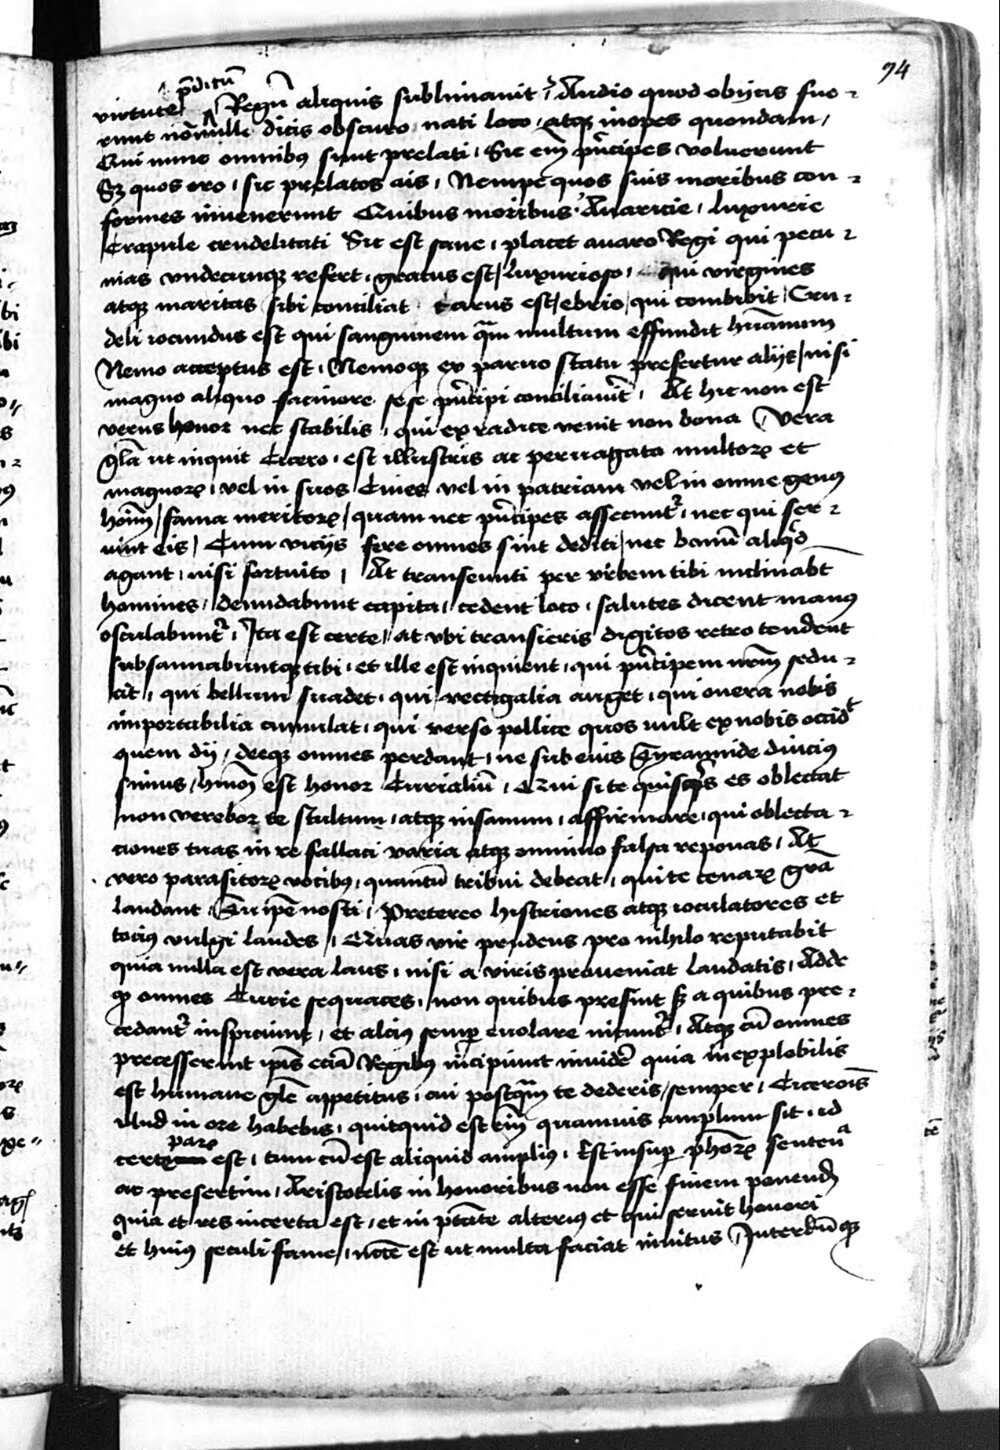 94
p̄ditū
virtute Regū aliquis sublimauit, Audio quod obijcis fue-
runt nōnulli dicis obscuro nati loco, atq; inopes quondam,
Qui nunc omnibus sunt prelati, Sic em̄ pn̄cipes voluerunt
Sꝫ quos oro, sic prelatos ais, Nempe quos suis moribus con-
formes inuenerunt Quibus moribus, Auaricie, luxurie
Crapule crudelitati Sic est sane, placet auaro Regi qui pecu-
nias undecunq; refert, gratus est luxurioso, qui virgines
atq; maritas sibi conciliat Carus est ebrio, qui combibit, Cru-
deli iocundus est qui sanguinem q̄m multum effundit hūanum
Nemo acceptus est, Nemoq; ex paruo statu prefertur alijs, nisi
magno aliquo facinore sese pn̄cipi conciliauit, At hic non est
verus honor nec stabilis, qui ex radice venit non bona Vera
gl̄a ut inquit Cicero, est illustris ac peruagata multoꝝ et
magnoꝝ, vel in suos Ciues vel in patriam vel in omne genus
hoīm, fama meritoꝝ, quam nec pn̄cipes assecunt̄, nec qui ser-
uiunt eis, Cum vicijs fere omnes sint dediti, nec bonū aliqd
agant, nisi fortuito, At transeunti per urbem tibi inclinabt̄
homines, denudabunt capita, cedent loco, salutes dicent manus
osculabunt̄, Ita est certe, at ubi transieris digitos retro tendent
subsannabuntq; tibi, et ille est inquient, qui pn̄cipem nr̄m sedu-
cit, qui bellum suadet, qui vectigalia auget, qui onera nobis
importabilia cumulat, qui verso pollice quos uult ex nobis occidt
quem dij, deeq; omnes perdant, ne sub eius Tyramnide diucius
simus, hm̄oi est honor Curialiū, Qui si te quisq̄s es oblectat
non verebor te stultum, atq; insanum, affirmare, qui oblecta-
tiones tuas in re fallaci varia atq; omnino falsa reponas, At
vero parasitoꝝ vocibus, quantū tribui debeat, qui te cenaꝝ gr̄a
laudant, Tu ip̄e nosti, Pretereo histriones atq; ioculatores et
tocius vulgi laudes, Quas vir prudens pro nihilo reputabit
quia nulla est vera laus, nisi a viris proueniat laudatis, Adde
ꝙ omnes Curie sequaces, non quibus presint sꝫ a quibus pre-
cedant̄ inspiciunt, et alcius semp̄ euolare nitunt̄, Atq; cū omnes
precesserint ip̄is eciā Regibus incipiunt inuidē quia inexplebilis
est humane gl̄e appetitus, cui postq̄m te dederis, semper, Cicerois
illud in ore habebis, quicquid est em̄ quamuis amplum sit, id
paꝝ
certe est, tum cū est aliquid amplius, Est insup̄ ph̄oꝝ sentēa
ac presertim, Aristotelis in honoribus non esse finem ponendū
quia et res incerta est, et in ptāte alterius et qui seruit honori
et huius seculi fame, nc̄ce est ut multa faciat inuitus Interdūq;